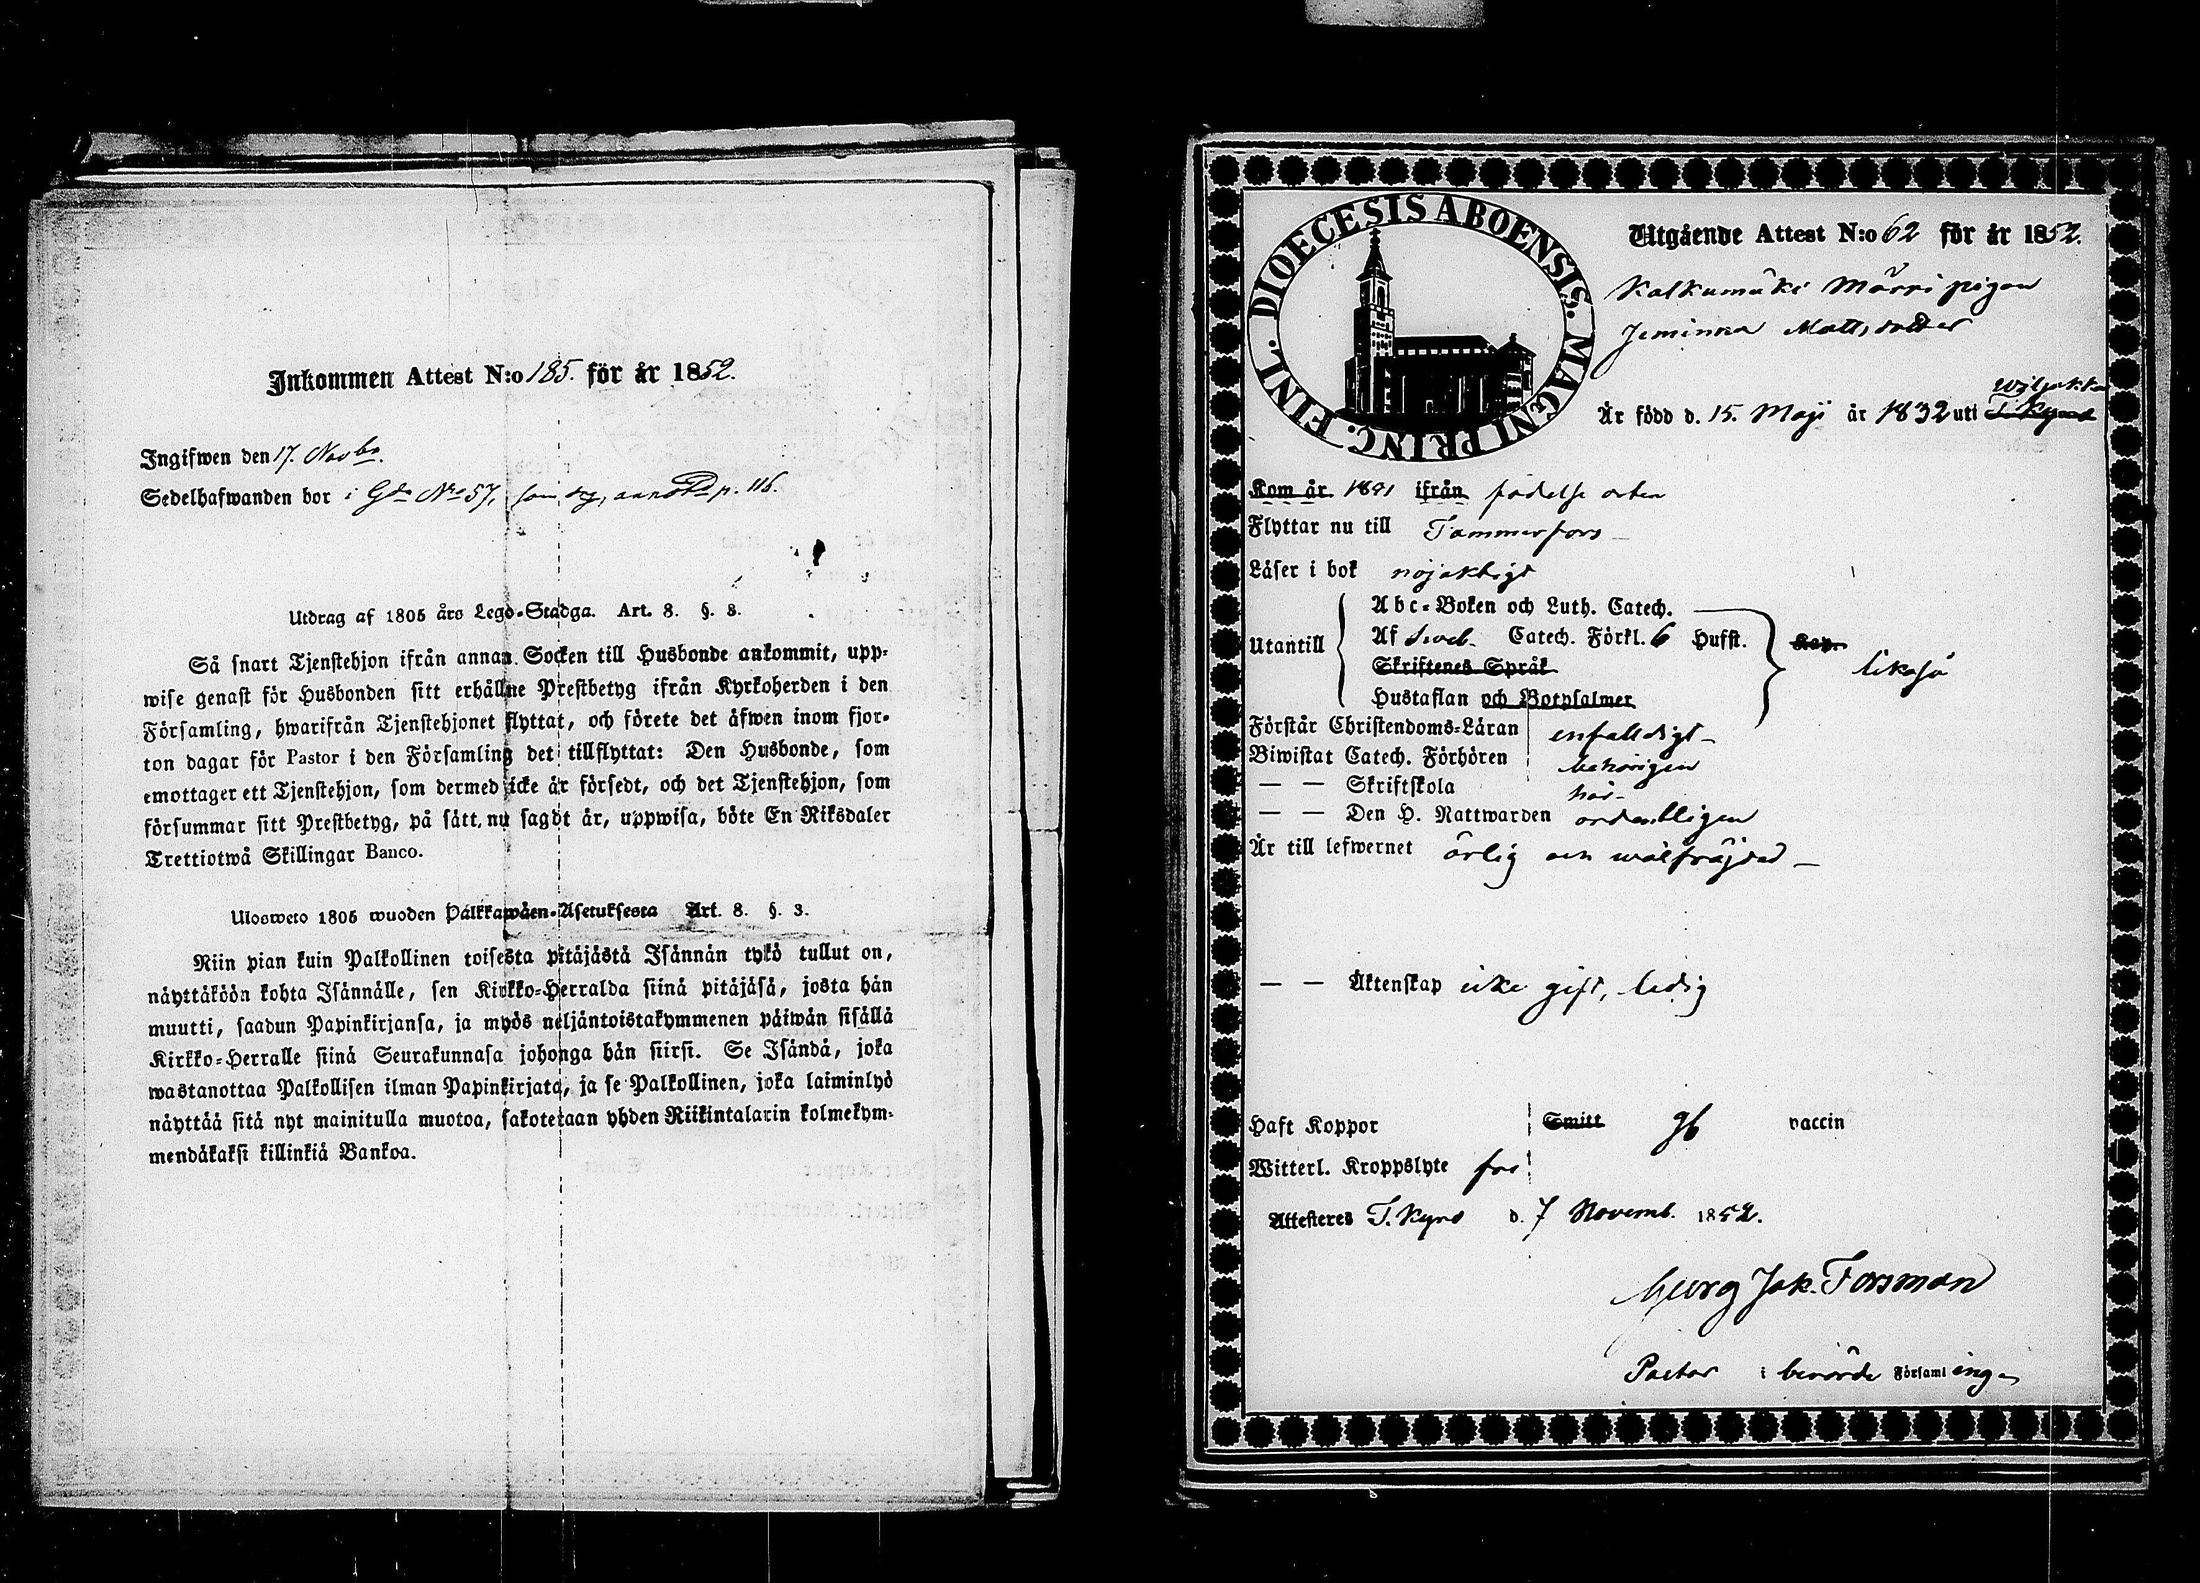 Inkommen Attest N:o 185. för år 1852.
Ingifwen den 17. Novbr.
Sedelhafwanden bor i Gdn No 57, som pig, annoterd p. 116.
Utdrag af 1805 års Lego-Stadga. Art. 8. §. 3.
Så snart Tjenstehjon ifrån annan Socken till Husbonde ankommit, upp-
wise genast för Husbonden sitt erhållne Prestbetyg ifrån Kyrkoherden i den
Församling, hwarifrån Tjenstehjonet flyttat, och förete det äfwen inom fjor-
ton dagar för Pastor i den Församling det tillflyttat: Den Husbonde, som
emottager ett Tjenstehjon, som dermed icke är försedt, och det Tjenstehjon, som
försummar sitt Prestbetyg, på sätt nu sagdt är, uppwisa, böte En Riksdaler
Trettiotwå Skillingar Banco.
Ulosweto 1805 wuoden Palkkawäen-Asetuksesta Art. 8. §. 3.
Niin pian kuin Palkollinen toisesta pitäjästä Isännän tykö tullut on,
näyttäköön kohta Isännälle, sen Kirkko-Herralda siinä pitäjäsä, josta hän
muutti, saadun Papinkirjansa, ja myös neljäntoistakymmenen päiwän sisällä
Kirkko-Herralle siinä Seurakunnasa johonga hän siirsi. Se Isändä, joka
wastanottaa Palkollisen ilman Papinkirjata, ja se Palkollinen, joka laiminlyö
näyttää sitä nyt mainitulla muotoa, sakotetaan yhden Riikintalarin kolmekym-
mendäkaksi killinkiä Bankoa.
DIOECESIS ABOENSIS. MAGNI PRINC. FINL.
Utgående Attest N:o 62 för år 1852.
Kalkumäki Mörri pigan
Jeminna Mattsdotter
Wiljakka
Är född d. 15. Maji år 1832 uti T. Kyro
Kom år 1841 ifrån födelse orten
Flyttar nu till Tammerfors
Läser i bok nöjaktigt
Abc-Boken och Luth. Catech.
Utantill Af Sveb. Catech. Förkl. 6 Hufst. Kap. likaså
Skriftenes Språk
Hustaflan och Botpsalmer
Förstår Christendoms-Läran enfalldigt
Biwistat Catech. Förhören behörigen
— — Skriftskola här
— — Den H. Nattwarden ordentligen
Är till lefwernet ärlig och wälfräjdad
— — Äktenskap icke gift, ledig
Haft Koppor Smitt gb vaccin
Witterl. Kroppslyte fri
Attesteres T. Kyro d. 7 Novemb. 1852.
Georg Jak. Forsman
Pastor i berörde Församlingen